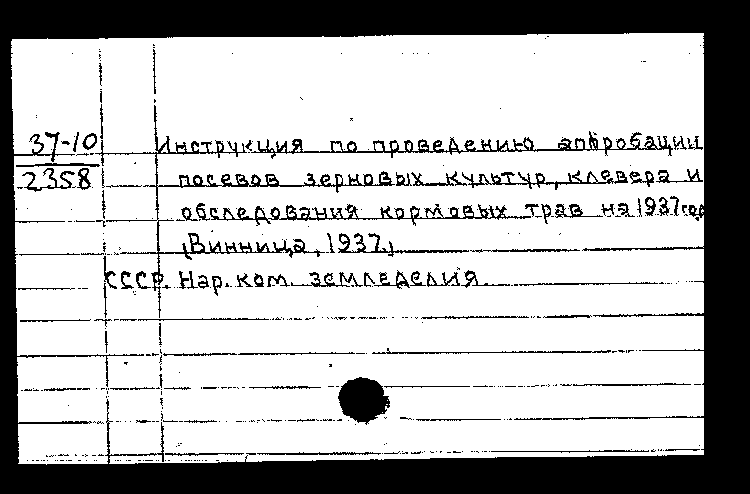 37-10 Инструкция по проведению апробации
2358 посевов зерновых культур, клевера и
обследования кормовых трав на 1937 год
(Винница, 1937.)
СССР. Нар. ком. земледелия.